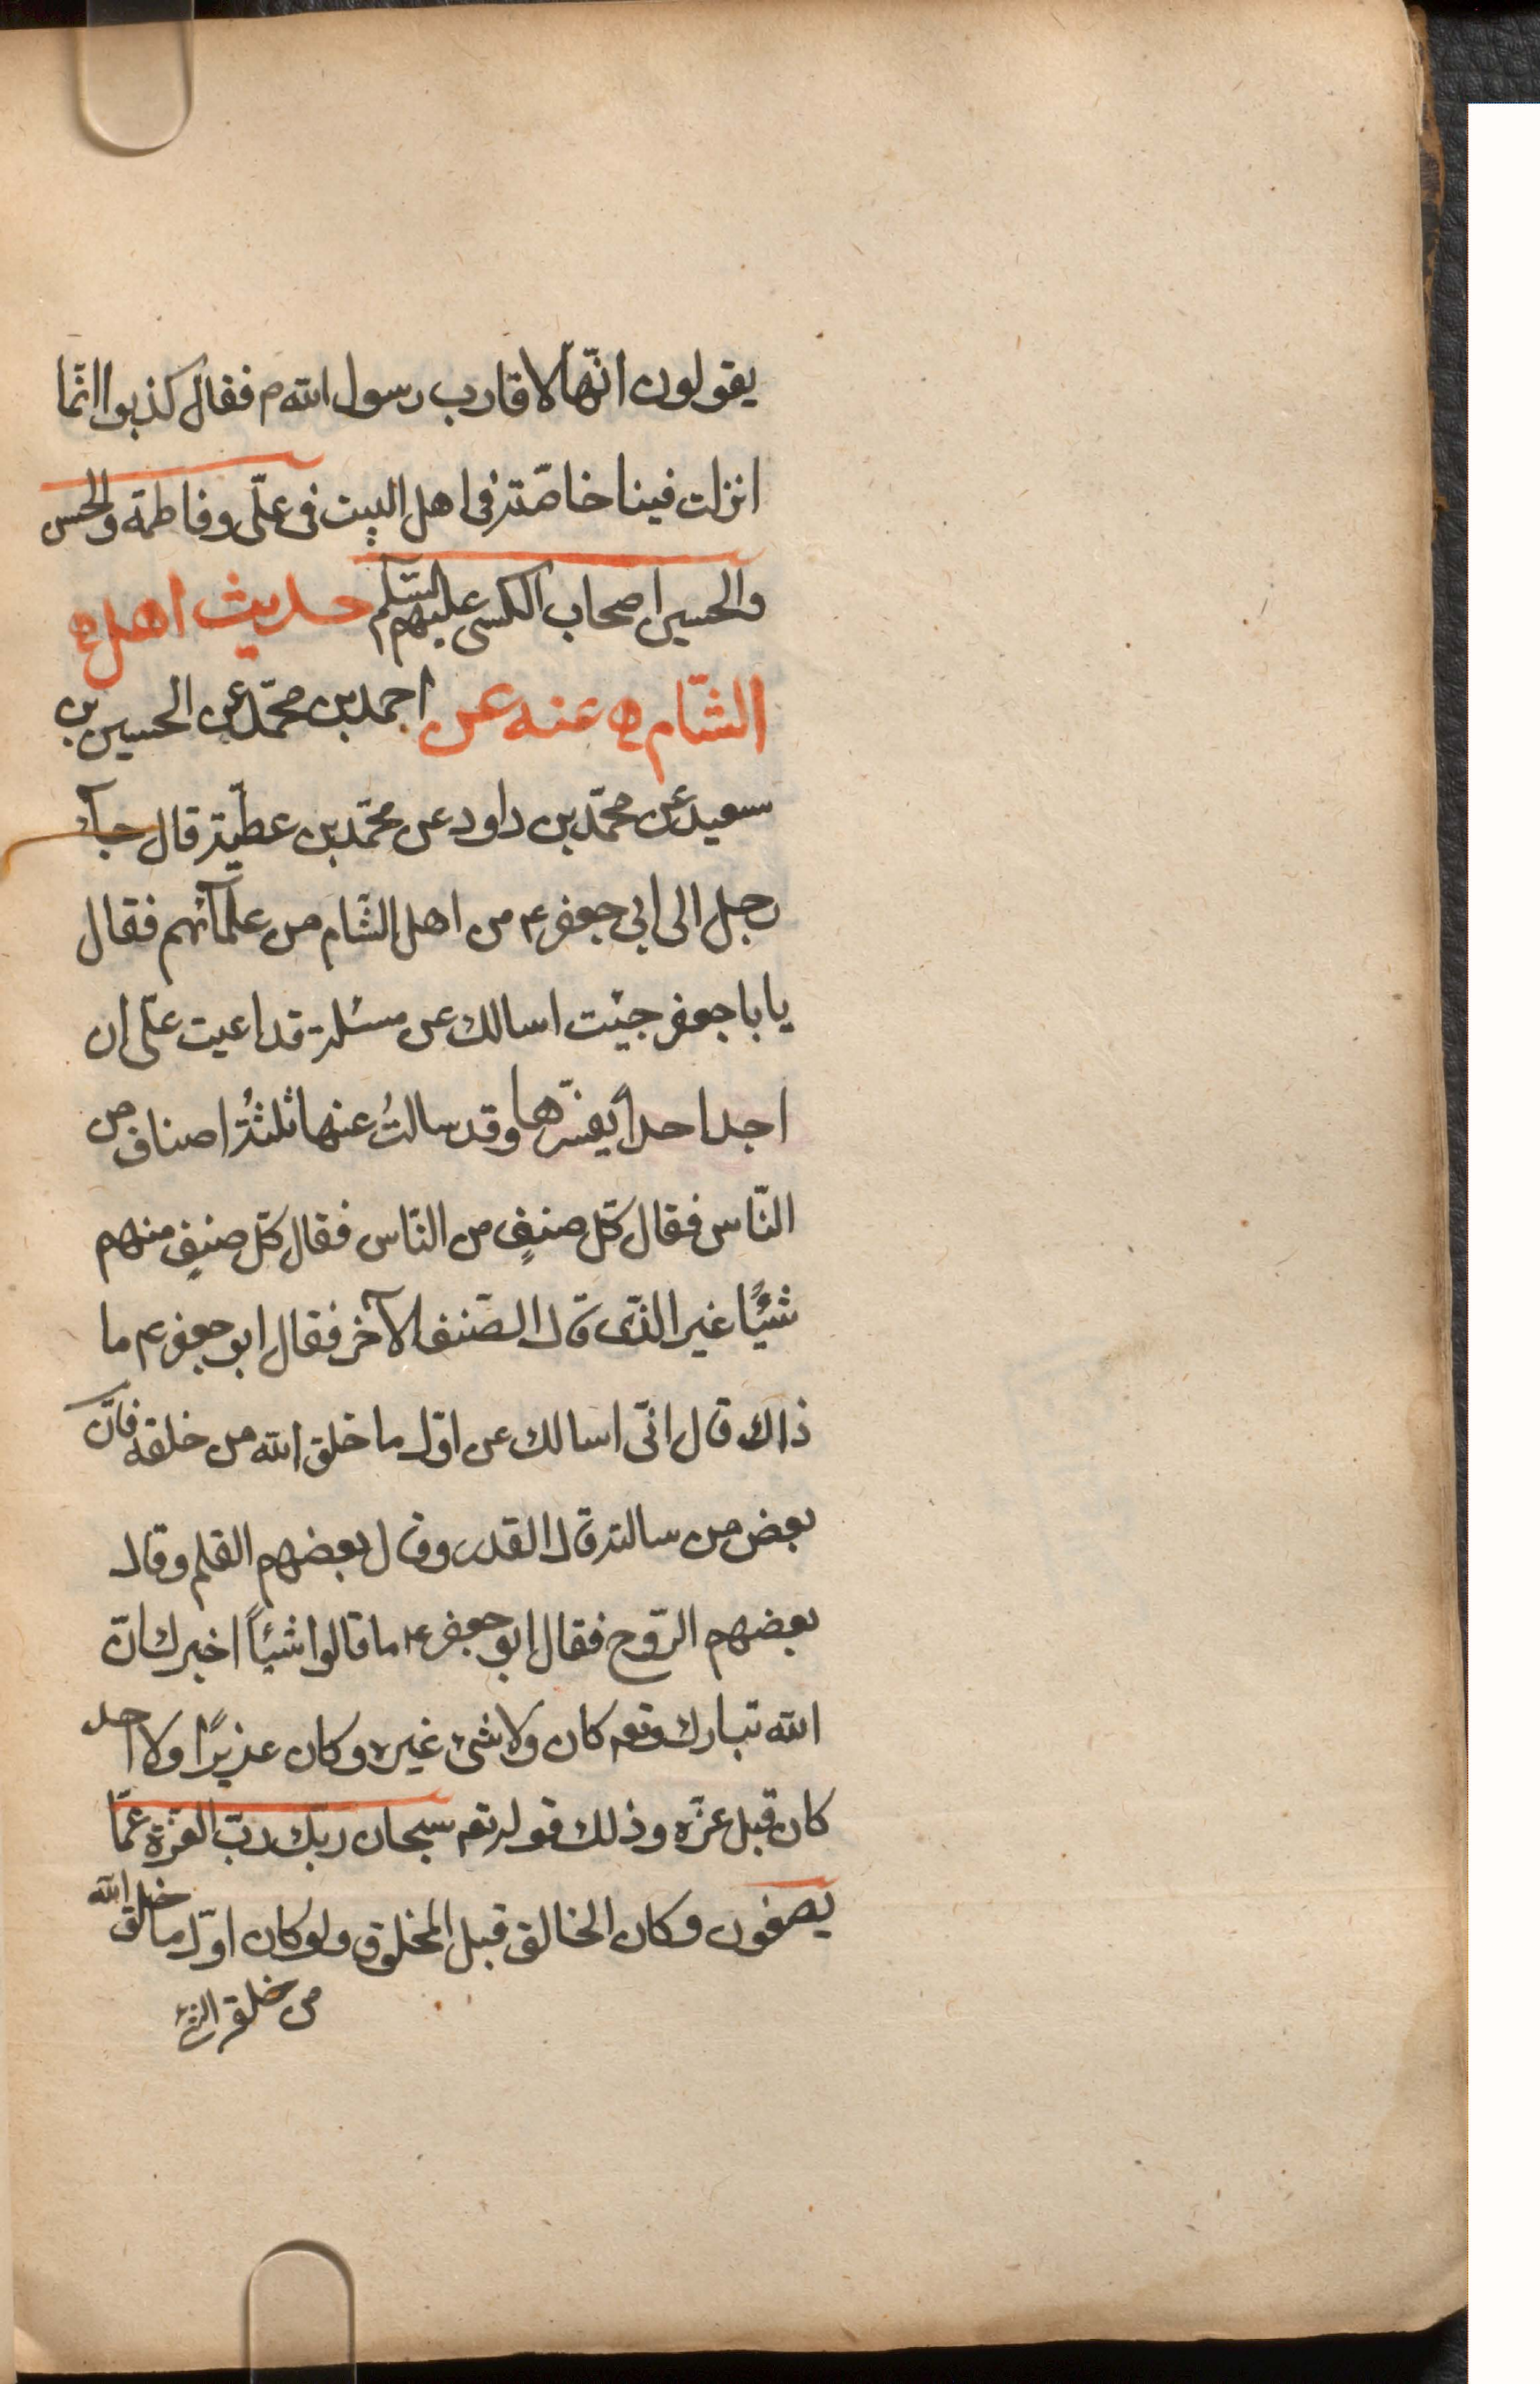 يقولون انّها لاقارب رسول الله م فقال كذبوا انّما
انزلت فينا خاصّة فى اهل البيت فى علّى وفاطمة والحسن
والحسين اصحاب الكسى عليهم السّلم حديث اهل ه
الشّام ه عنه عن احمد بن محمّد عن الحسين بن
سعيد عن محمّد بن داود عن محمّد بن عطيّة قال جآء
رجل الى ابى جعفر ع من اهل الشّام من علمآئهم فقال
يا باجعفر جيئت اسالك عن مسئلة قد اعيت علّى ان
اجد احداً يفسّرها وقد سالتُ عنها ثلثةُ اصناف من
النّاس فقال كلّ صنفٍ من النّاس فقال كلّ صنفٍ منهم
شيئًا غير الذّى قال الصّنف الآخر فقال ابو جعفر ع ما
ذاك قال انّى اسالك عن اوّل ما خلق الله من خلقه فانّ
بعض من سالته قال القدر وقال بعضهم القلم وقال
بعضهم الرّوح فقال ابو جعفر ع ما قالوا شيئاً اخبرك انّ
الله تبارك وتع كان ولا شىء غيره وكان عزيزًا ولا احد
كان قبل عزّه وذلك قوله تع سبحان ربّك ربّ العزّة عمّا
يصفون وكان الخالق قبل المخلوق ولو كان اوّل ما خلق الله
من خلقه الشىء